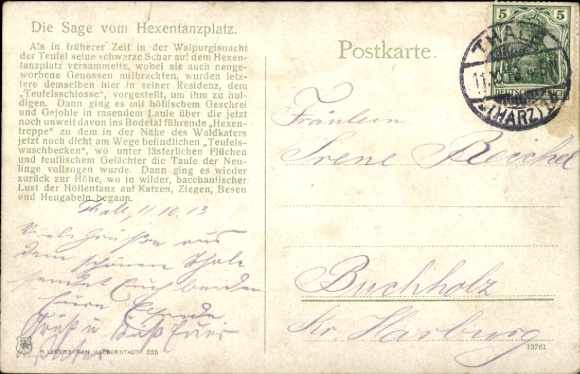 Die Sage vom Hexentanzplatz.
Als in früherer Zeit in der Walpurgisnacht
der Teufel seine schwarze Schar auf dem Hexen-
tanzplatz versammelte, wobei sie auch neuge-
worbene Genossen mitbrachten, wurden letz-
tere demselben hier in seiner Residenz, dem
„Teufelsschlosse“, vorgestellt, um ihm zu hul-
digen. Dann ging es mit höllischem Geschrei
und Gejohle in rasendem Laufe über die jetzt
noch unweit davon ins Bodetal führende „Hexen-
treppe“ zu dem in der Nähe des Waldkaters
jetzt noch dicht am Wege befindlichen „Teufels-
waschbecken“, wo unter lästerlichen Flüchen
und teuflischem Gelächter die Taufe der Neu-
linge vollzogen wurde. Dann ging es wieder
zurück zur Höhe, wo in wilder, bacchantischer
Lust der Höllentanz auf Katzen, Ziegen, Besen
und Heugabeln begann.
Thale, 11.10.13
Viele Grüße aus
dem schönen Thale
sendet Euch beiden
Eure
Gruß u. Kuß Euer
Postkarte.
5 5
THALE
(HARZ)
DEUTSCHES REICH
Fräulein
Irene
Buchholz
Kr. Harburg
HALBERSTADT. 335
13761